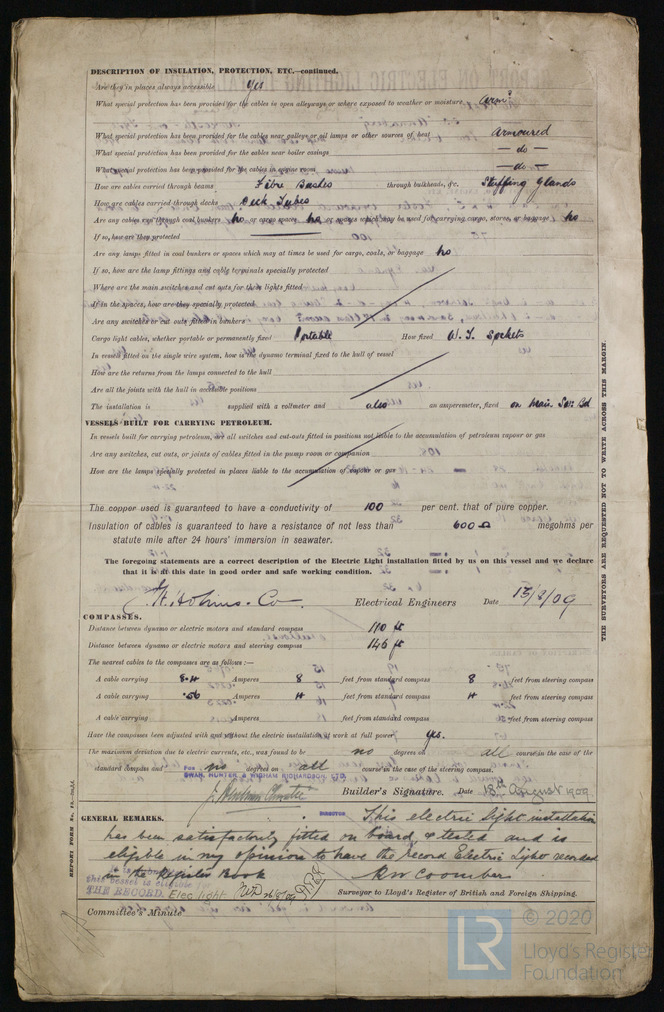 DESCRIPTION OF INSULATION, PROTECTION, ETC.—continued.
Are they in places always accessible Yes
What special protection has been provided for the cables in open alleyways or where exposed to weather or moisture Arm'd
What special protection has been provided for the cables near galleys or oil lamps or other sources of heat Armoured
What special protection has been provided for the cables near boiler casings — do —
What special protection has been provided for the cables in engine room — do —
How are cables carried through beams Fibre Bushes through bulkheads, &c. Stuffing Glands
How are cables carried through decks Deck Tubes
Are any cables run through coal bunkers No or cargo spaces No or spaces which may be used for carrying cargo, stores, or baggage No
If so, how are they protected
Are any lamps fitted in coal bunkers or spaces which may at times be used for cargo, coals, or baggage No
If so, how are the lamp fittings and cable terminals specially protected
Where are the main switches and cut outs for these lights fitted
If in the spaces, how are they specially protected
Are any switches or cut outs fitted in bunkers
Cargo light cables, whether portable or permanently fixed Portable How fixed W. T. Sockets
In vessels fitted on the single wire system, how is the dynamo terminal fixed to the hull of vessel
How are the returns from the lamps connected to the hull
Are all the joints with the hull in accessible positions
The installation is supplied with a voltmeter and also an amperemeter, fixed on Main Sw: Bd
VESSELS BUILT FOR CARRYING PETROLEUM.
In vessels built for carrying petroleum, are all switches and cut-outs fitted in positions not liable to the accumulation of petroleum vapour or gas
Are any switches, cut outs, or joints of cables fitted in the pump room or companion
How are the lamps specially protected in places liable to the accumulation of vapour or gas
The copper used is guaranteed to have a conductivity of 100 per cent. that of pure copper.
Insulation of cables is guaranteed to have a resistance of not less than 600 Ω megohms per
statute mile after 24 hours' immersion in seawater.
The foregoing statements are a correct description of the Electric Light installation fitted by us on this vessel and we declare
that it is at this date in good order and safe working condition.
Electrical Engineers Date 13/8/09
COMPASSES.
Distance between dynamo or electric motors and standard compass 110 ft
Distance between dynamo or electric motors and steering compass 146 ft
The nearest cables to the compasses are as follows:—
A cable carrying 8.4 Amperes 8 feet from standard compass 8 feet from steering compass
A cable carrying .56 Amperes 4 feet from standard compass 4 feet from steering compass
A cable carrying Amperes feet from standard compass feet from steering compass
Have the compasses been adjusted with and without the electric installation at work at full power Yes.
The maximum deviation due to electric currents, etc., was found to be no degrees on all course in the case of the
standard compass and no degrees on all course in the case of the steering compass.
FOR
SWAN, HUNTER & WIGHAM RICHARDSON, LTD
Builder's Signature. Date 18th August 1909.
DIRECTOR
GENERAL REMARKS. This electric light installation
has been satisfactorily fitted on board, & tested and is
eligible in my opinion to have the record Electric Light recorded
in the Register Book
this vessel is eligible for
THE RECORD. Elec light
Surveyor to Lloyd's Register of British and Foreign Shipping.
Committee's Minute
THE SURVEYORS ARE REQUESTED NOT TO WRITE ACROSS THIS MARGIN.
LR
© 2020
Lloyd's Register
Foundation